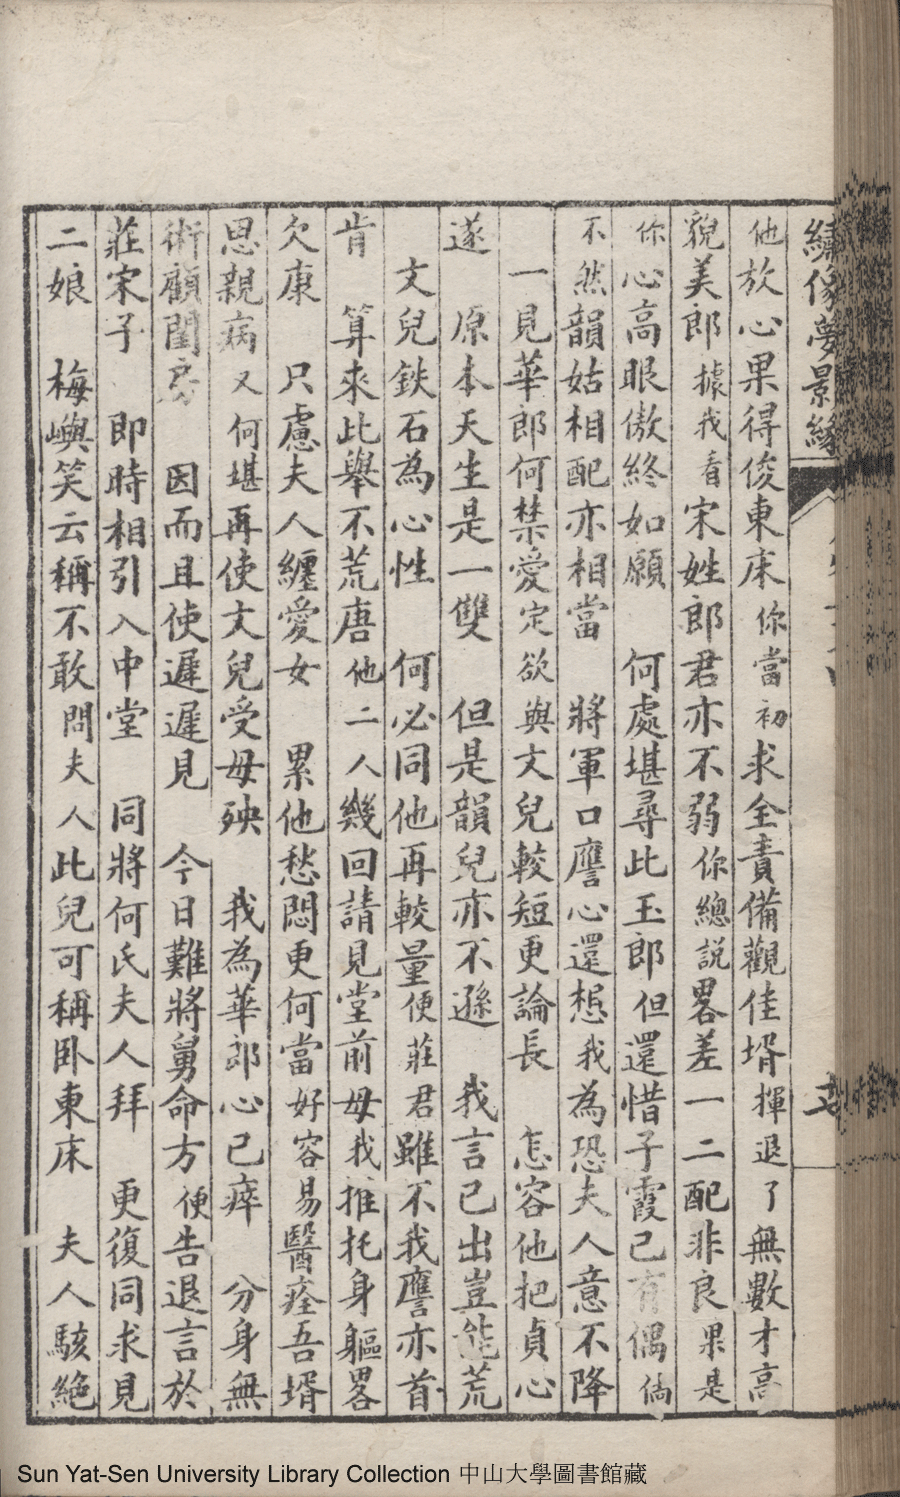 繡像夢景緣
他放心果得俊東床你當初求全責備觀佳壻揮退了無數才高
貌美郎據我看宋姓郎君亦不弱你總説畧差一二配非良果是
你心高眼傲終如願　何處堪尋此玉郎但還惜子霞已有偶倘
不然韻姑相配亦相當　將軍口譍心還想我為恐夫人意不降
一見華郎何禁愛定欲與文兒較短更論長　怎容他把貞心
遂　原本天生是一雙　但是韻兒亦不遜　我言已出豈能荒
文兒鉄石為心性　何必同他再較量便莊君雖不我譍亦首
肯　算來此舉不荒唐他二人幾回請見堂前母我推托身軀畧
欠康　只慮夫人纏愛女　累他愁悶更何當好容易醫痊吾壻
思親病又何堪再使文兒受母殃　我為華郎心已瘁　分身無
術顧閨房　因而且使遲遲見　今日難將舅命方便告退言於
莊宋子　即時相引入中堂　同將何氏夫人拜　更復同求見
二娘　梅嶼笑云稱不敢問夫人此兒可稱卧東床　夫人駭絶
Sun Yat-Sen University Library Collection 中山大學圖書館藏